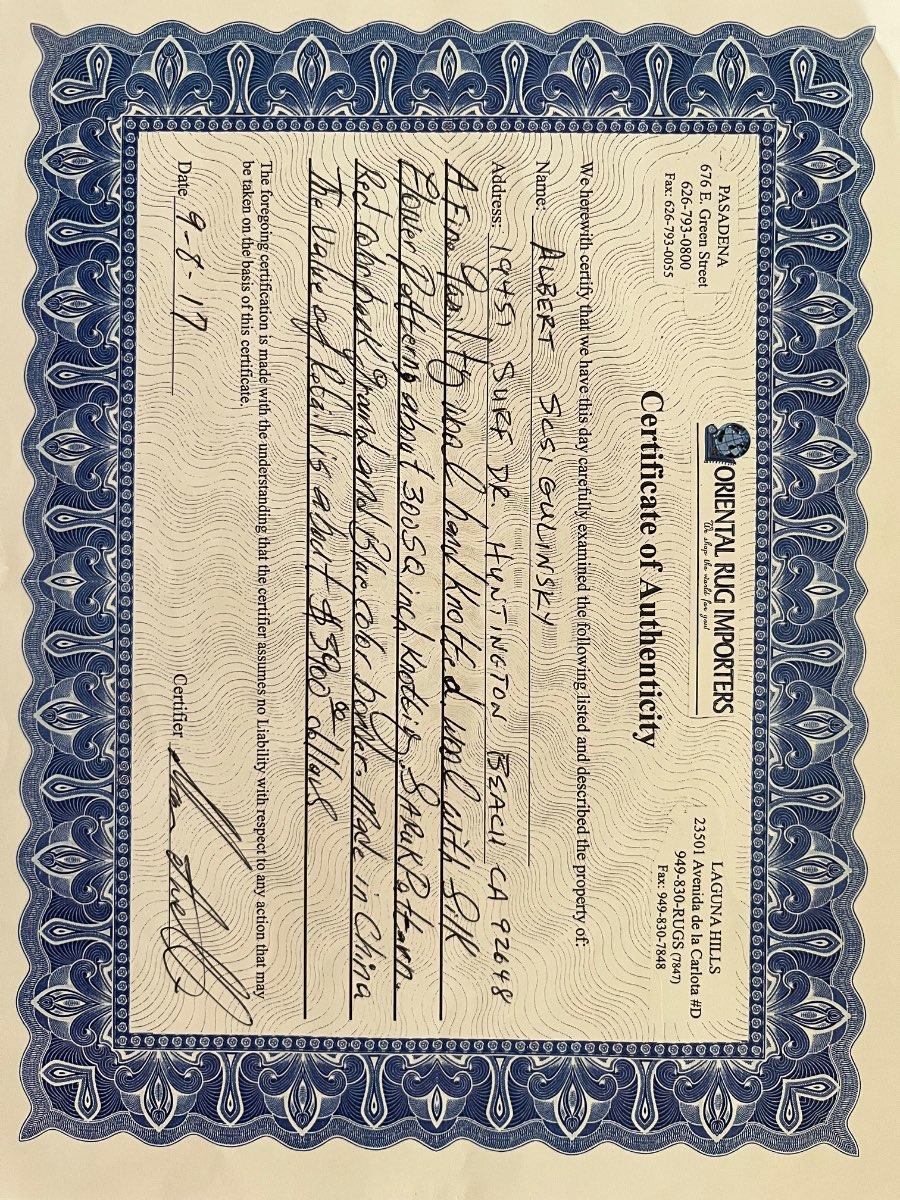 PASADENA
676 E. Green Street
626-793-0800
Fax: 626-793-0055
ORIENTAL RUG IMPORTERS
We shop the world for you!
LAGUNA HILLS
23501 Avenida de la Carlota #D
949-830-RUGS (7847)
Fax: 949-830-7848
Certificate of Authenticity
We herewith certify that we have this day carefully examined the following listed and described the property of:
Name: ALBERT SCSIGULINSKY
Address: 19451 SURF DR. HUNTINGTON BEACH CA 92648
A Fine Quality wool hand knotted wool with Silk
Flower Pattern about 300 SQ inch knotting. SARUK Pattern.
Red color back ground and Blue color border. Made in China
The Value of Retail is about $3900.00 dollars
The foregoing certification is made with the understanding that the certifier assumes no Liability with respect to any action that may
be taken on the basis of this certificate.
Date 9-8-17
Certifier